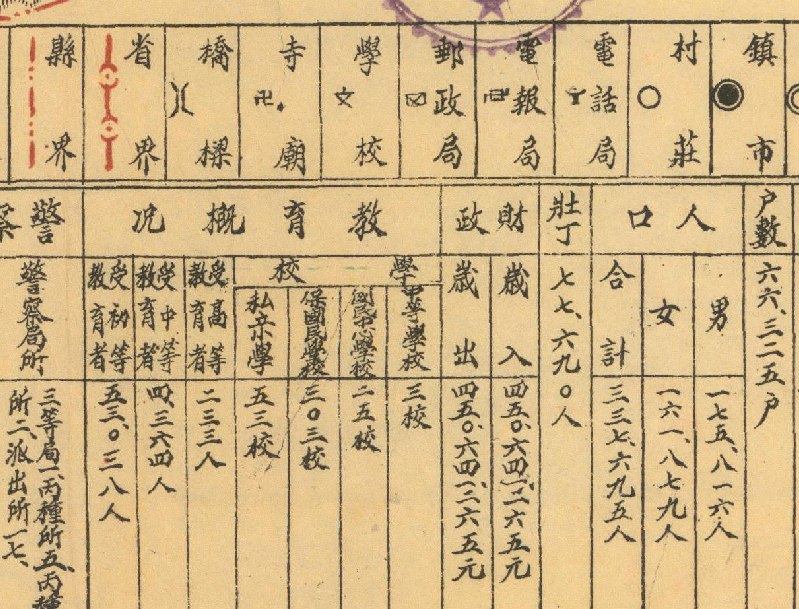 鎮市
村莊
電話局
電報局
郵政局
學校
寺廟
橋樑
省界
縣界
戶數
六六、三二五戶
人口
男
一七五、八一六人
女
一六一、八七九人
合計
三三七、六九五人
壯丁
七七、六九〇人
財政
歲入
四五〇、六四一、二六五元
歲出
四五〇、六四一、二六五元
教育概況
學校
中等學校
三校
國民中心學校
二五校
保國民學校
三〇三校
私立小學
五三校
受高等教育者
二三三人
受中等教育者
四、三六四人
受初等教育者
五三、〇三八人
警察
警察局所
三等局一、丙種所五、丙種
所二、派出所一七、